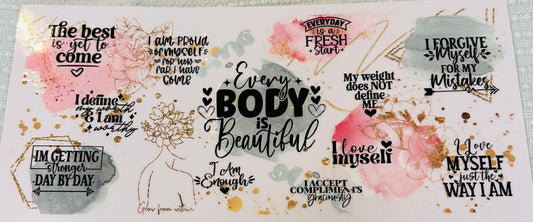 The best
is yet to
come
I am PROUD
of myself
for how
far I have
COME
EVERYDAY
is a
FRESH
Start
I FORGIVE
Myself
FOR MY
Mistakes
I define
my worth
& I am
worthy
Every
BODY
is
Beautiful
My weight
does NOT
define
ME
IM GETTING
stronger
DAY BY DAY
Grow from within
I Am
Enough
I love
myself
I ACCEPT
COMPLIMENTS
Graciously
I Love
MYSELF
just the
WAY I AM